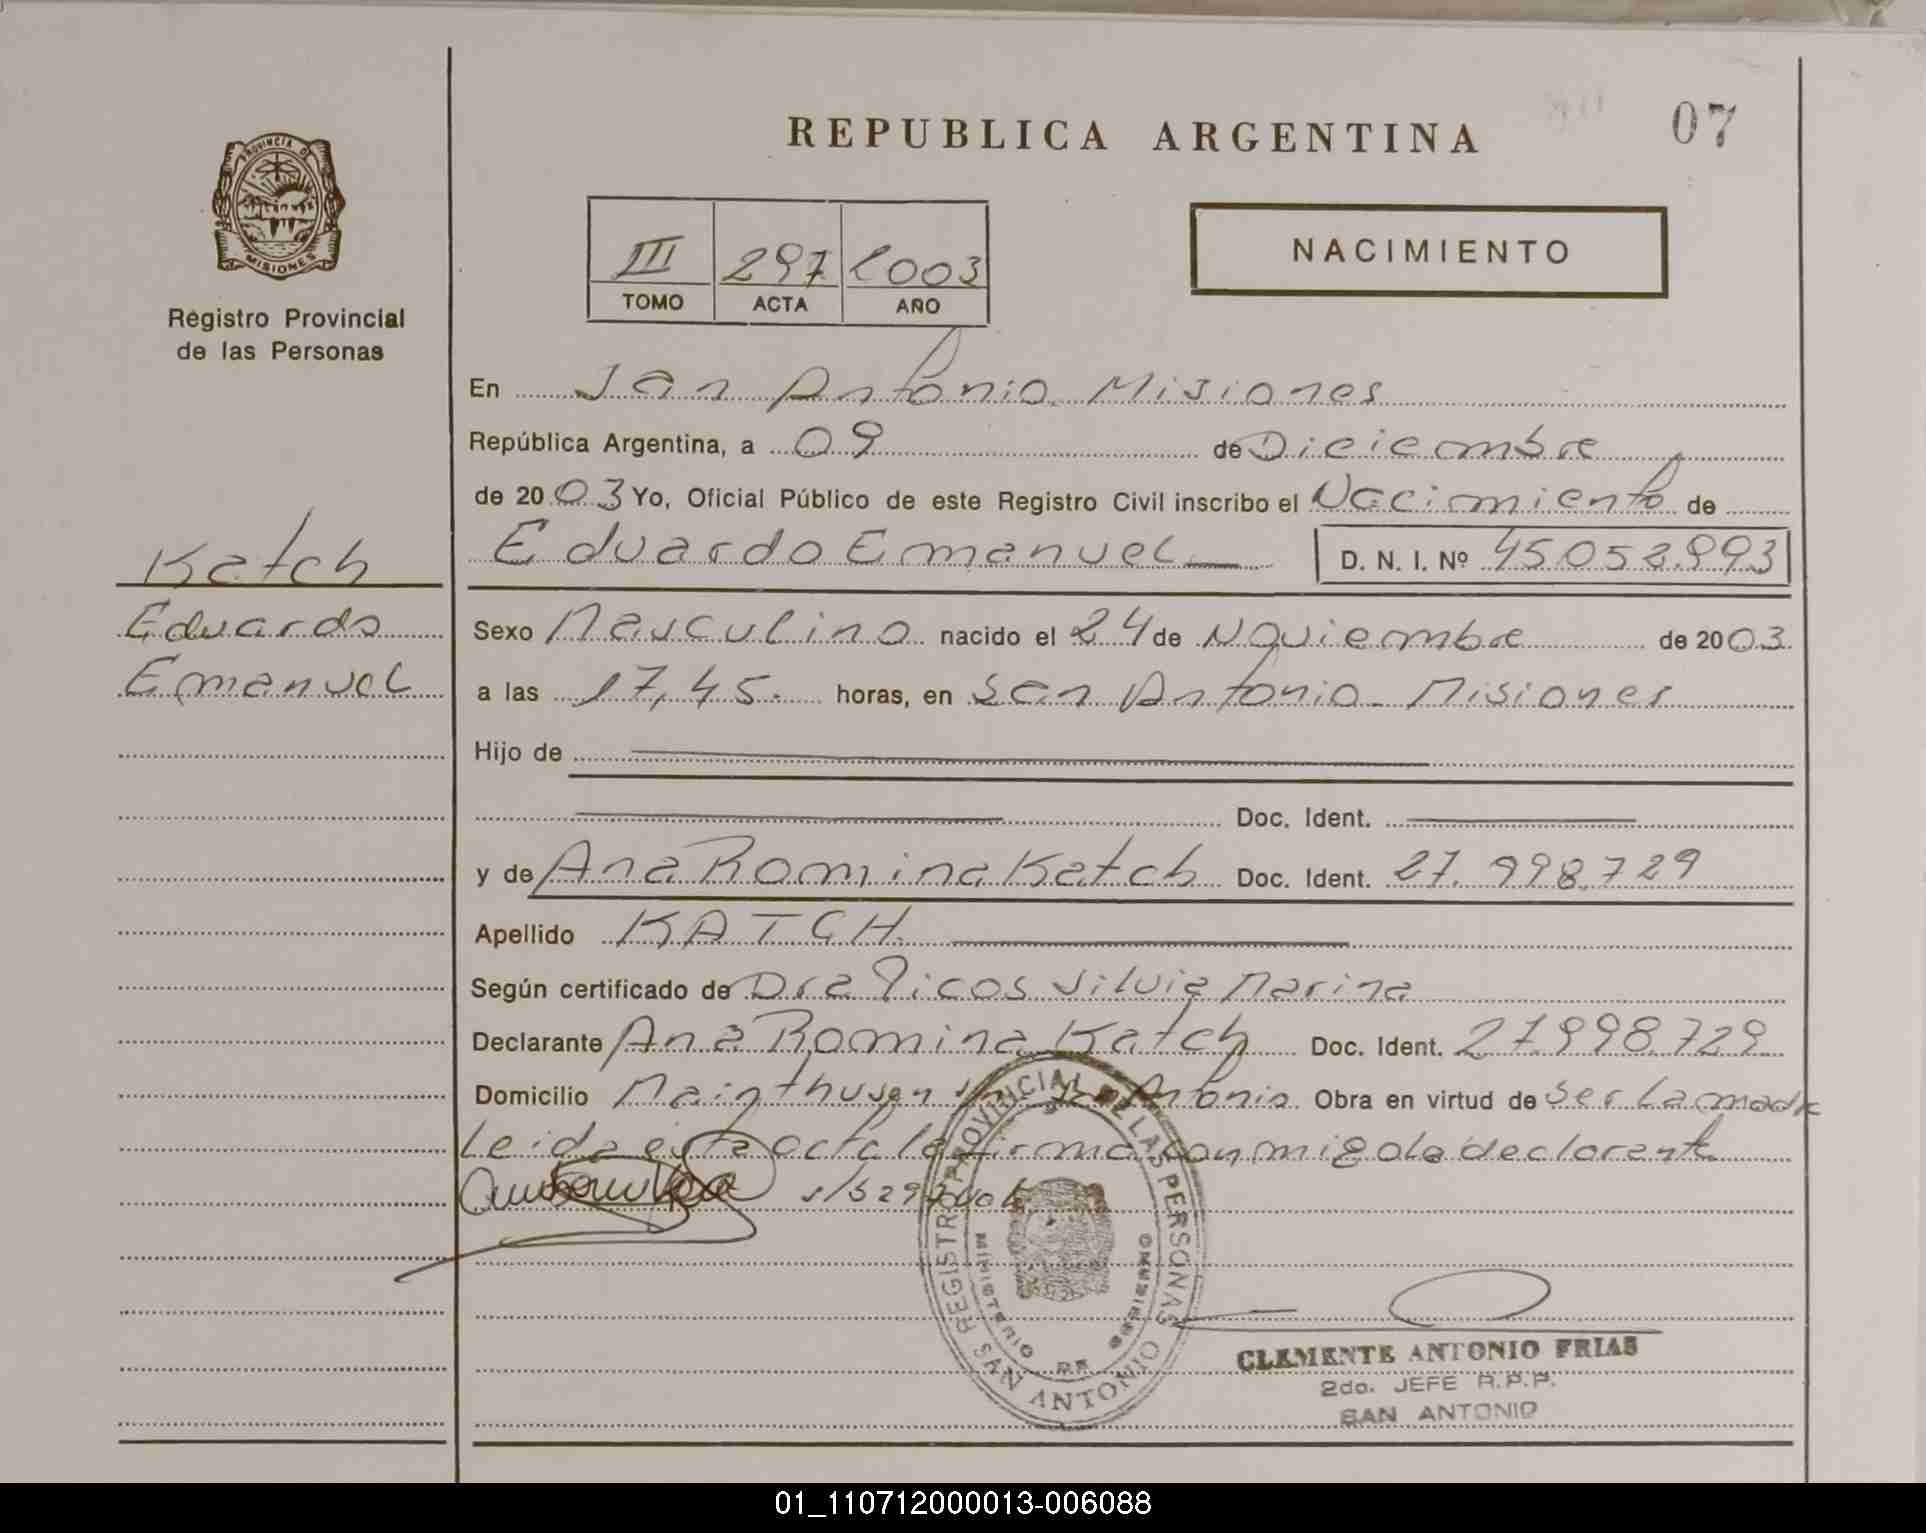 REPUBLICA ARGENTINA
07
PROVINCIA DE
MISIONES
Registro Provincial
de las Personas
III 297 2003
TOMO ACTA AÑO
NACIMIENTO
En San Antonio Misiones
República Argentina, a 09 de Diciembre
de 2003 Yo, Oficial Público de este Registro Civil inscribo el Nacimiento de
Eduardo Emanuel D. N. I. Nº
Katch
Eduardo
Emanuel
Sexo Masculino nacido el 24 de Noviembre de 2003
a las 17,45. horas, en San Antonio - Misiones
Hijo de
Doc. Ident.
y de Ana Romina Katch Doc. Ident. 27.998.729
Apellido KATCH.
Según certificado de Dra Picos Silvia Marina
Declarante Ana Romina Katch Doc. Ident. 27.998.729
Domicilio Antonio Obra en virtud de ser La madre
Leida esta acta la firma conmigo la declarante
REGISTRO PROVINCIAL DE LAS PERSONAS
MINISTERIO DE GOBIERNO
SAN ANTONIO
CLEMENTE ANTONIO FRIAS
2do. JEFE R.P.P.
SAN ANTONIO
01_110712000013-006088